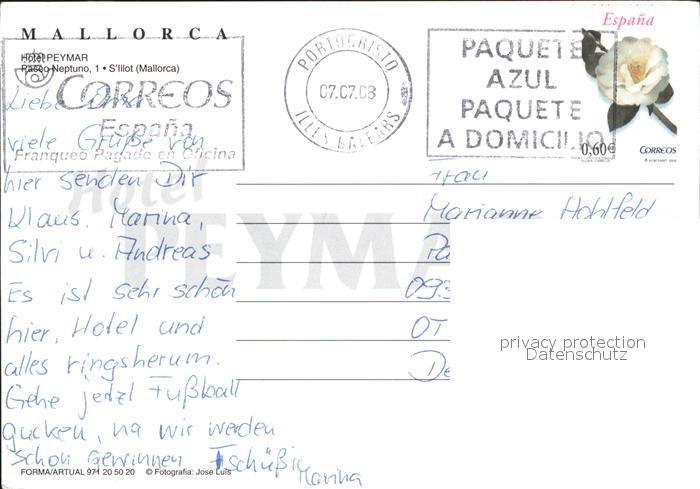 MALLORCA
Hotel PEYMAR
Paseo Neptuno, 1 • S'Illot (Mallorca)
CORREOS
España
Franqueo Pagado en Oficina
PORTOCRISTO
07.07.08
ILLES BALEARS
PAQUETE
AZUL
PAQUETE
A DOMICILIO
España
0,60€
CORREOS
Hotel
PEYMA
Liebe Oma
viele Grüße von
hier senden Dir
Klaus, Marina,
Silvi u. Andreas
Es ist sehr schön
hier, Hotel und
alles ringsherum.
Gehe jetzt Fußball
gucken, na wir werden
schon gewinnen Tschüßi
Marina
Frau
Marianne Hohlfeld
Pa
093
OT
De
privacy protection
Datenschutz
FORMA/ARTUAL 971 20 50 20 © Fotografía: Jose Luis